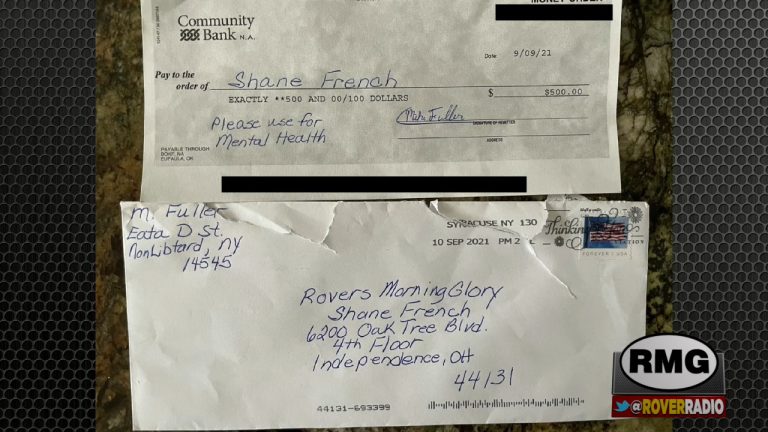 MONEY ORDER
Community
Bank N.A.
Date 9/09/21
Pay to the
order of Shane French
EXACTLY **500 AND 00/100 DOLLARS $ $500.00
Please use for
Mental Health
SIGNATURE OF REMITTER
ADDRESS
PAYABLE THROUGH
BOKF, NA
EUFAULA, OK
M. Fuller
Eata D St.
NonLibtard, NY
14545
SYRACUSE NY 130
10 SEP 2021 PM 2 L
Thinking
FOREVER / USA
Rovers MorningGlory
Shane French
6200 Oak Tree Blvd.
4th Floor
Independence, OH
44131
44131-693399
RMG
@ROVERRADIO